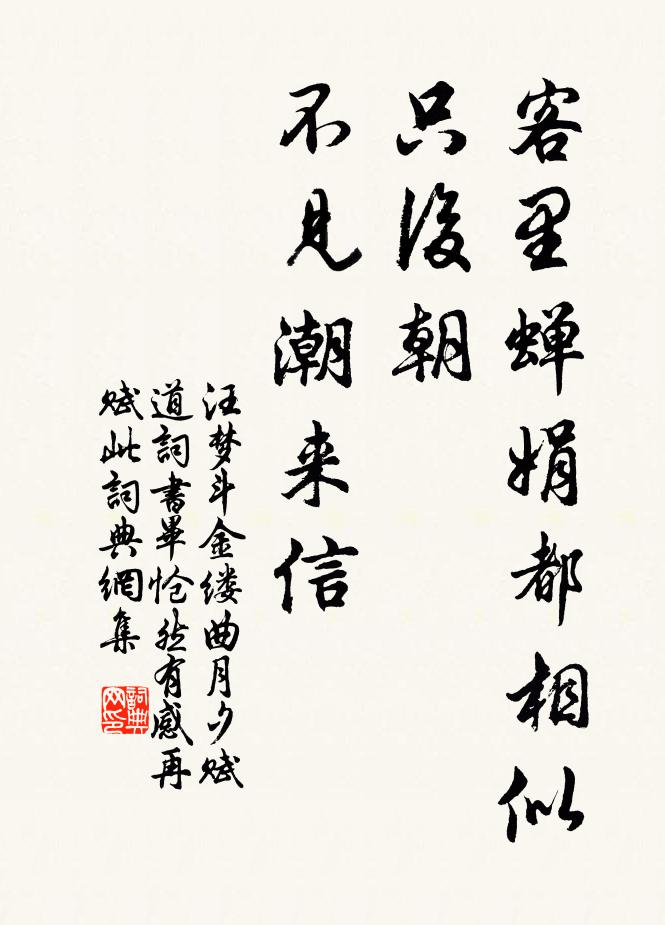 客里蝉娟都相似
只後朝
不见潮来信
汪梦斗金缕曲月夕赋
道詞書畢怆然有感再
赋此詞典網集
詞典网印